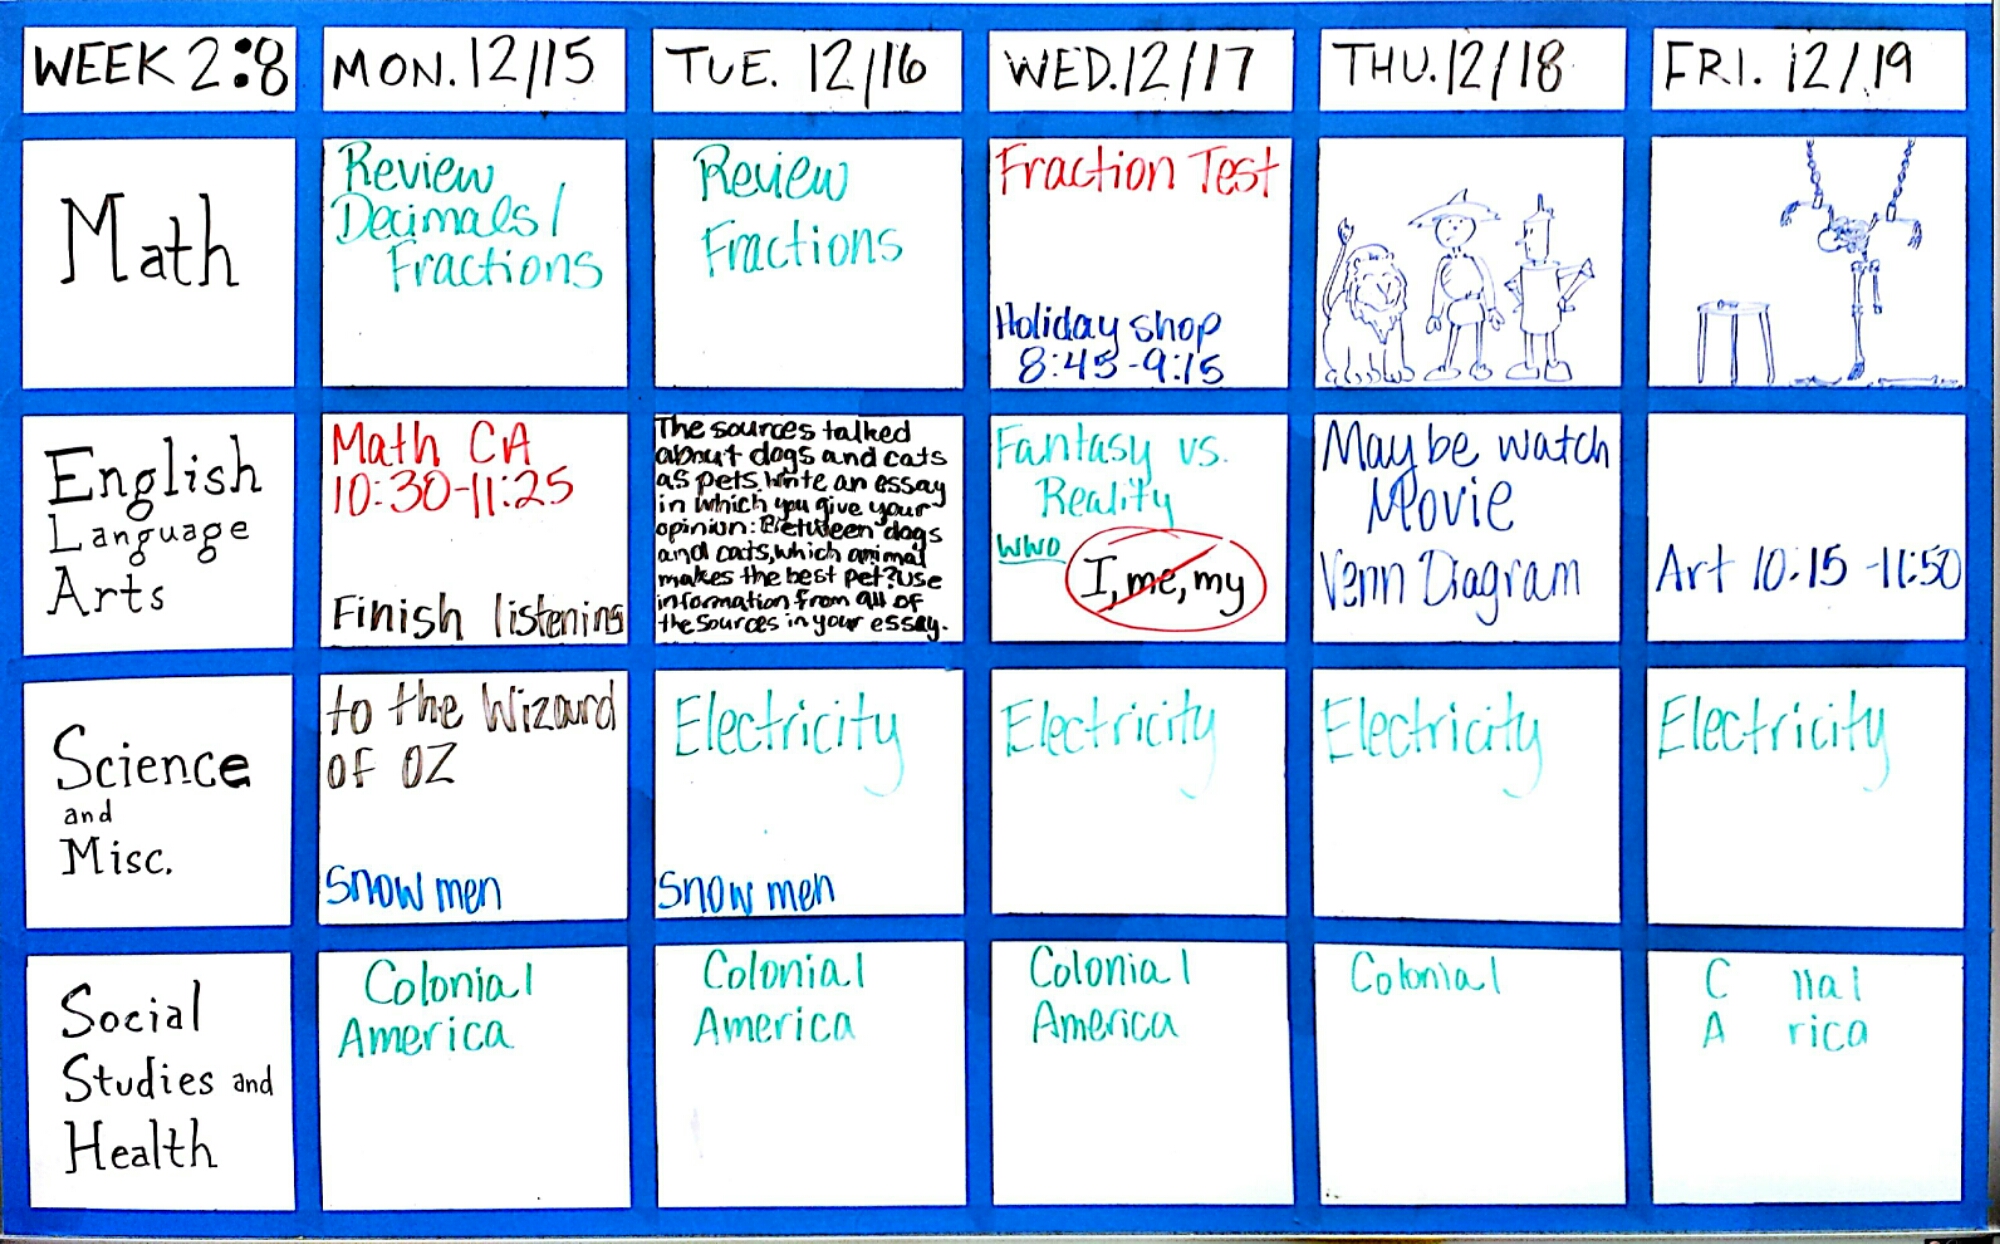 WEEK 2:8
MON. 12/15
TUE. 12/16
WED. 12/17
THU. 12/18
FRI. 12/19
Math
Review
Decimals/
Fractions
Review
Fractions
Fraction Test
Holiday shop
8:45-9:15
English
Language
Arts
Math CA
10:30-11:25
Finish listening
The sources talked
about dogs and cats
as pets. Write an essay
in which you give your
opinion: Between dogs
and cats, which animal
makes the best pet? Use
information from all of
the sources in your essay.
Fantasy vs.
Reality
WWO
I, me, my
Maybe watch
Movie
Venn Diagram
Art 10:15-11:50
Science
and
Misc.
to the Wizard
of OZ
Snowmen
Electricity
Snowmen
Electricity
Electricity
Electricity
Social
Studies and
Health
Colonial
America
Colonial
America
Colonial
America
Colonial
C nial
A rica